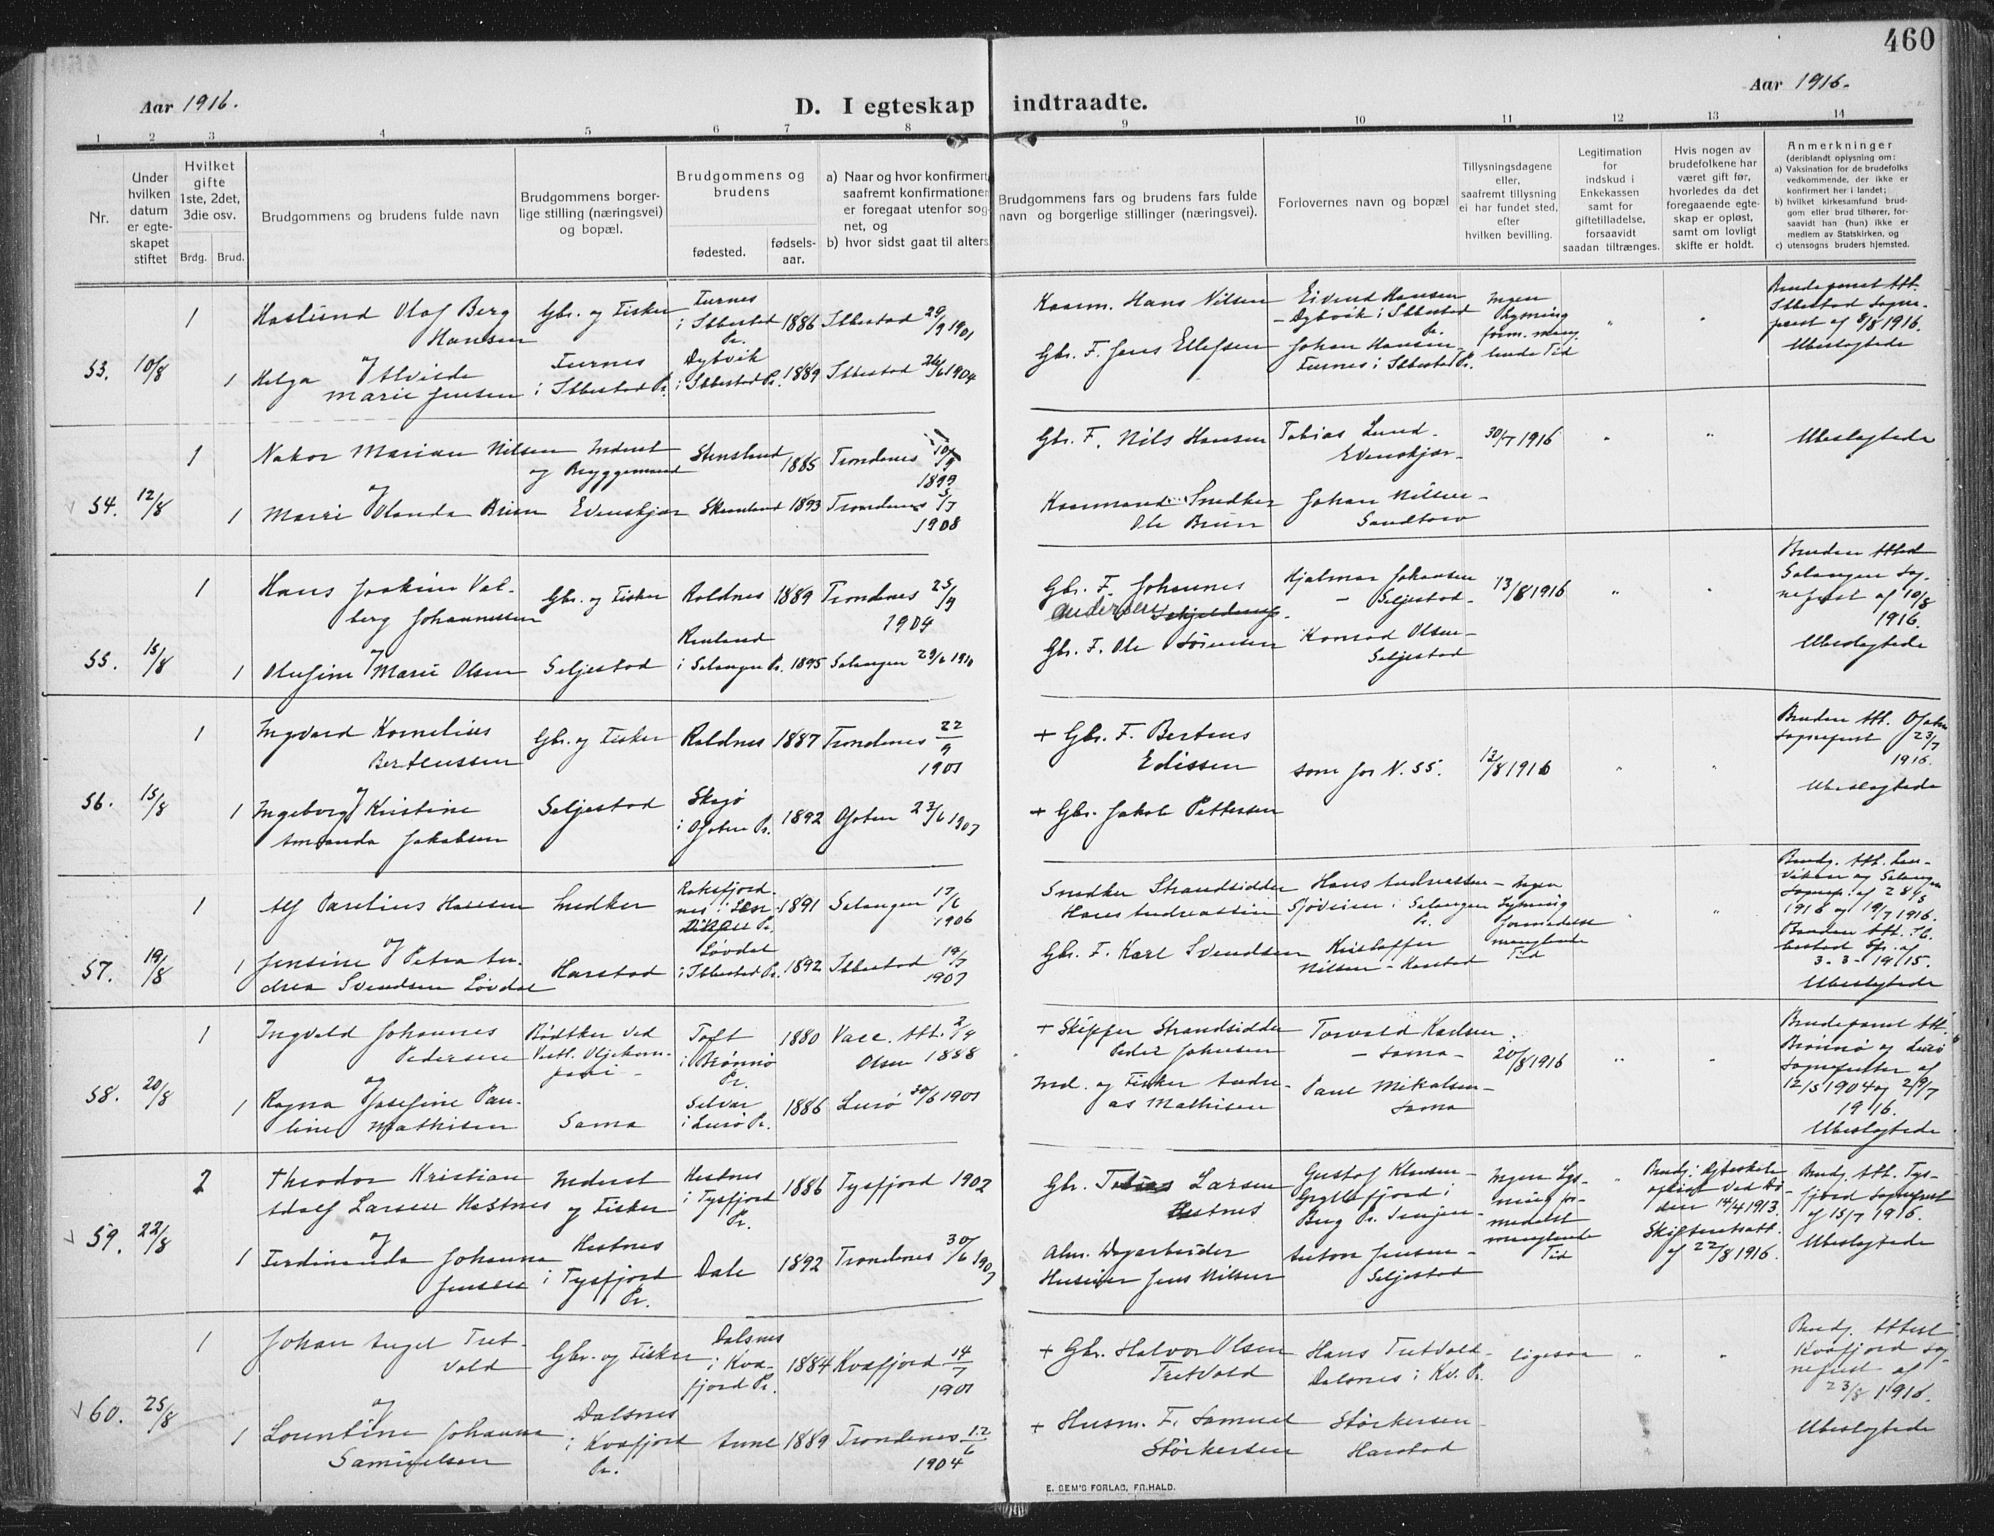 460
Aar 1916.
D. I egteskap indtraadte.
Aar 1916.
1 2 3 4 5 6 7 8 9 10 11 12 13 14
Nr.
Under hvilken datum er egteskapet stiftet
Hvilket gifte 1ste, 2det, 3die osv.
Brdg. Brud.
Brudgommens og brudens fulde navn
Brudgommens borgerlige stilling (næringsvei) og bopæl.
Brudgommens og brudens
fødested.
fødselsaar.
a) Naar og hvor konfirmert, saafremt konfirmationen er foregaat utenfor sognet, og
b) hvor sidst gaat til alters
Brudgommens fars og brudens fars fulde navn og borgerlige stillinger (næringsvei).
Forlovernes navn og bopæl
Tillysningsdagene eller, saafremt tillysning ei har fundet sted, efter hvilken bevilling.
Legitimation for indskud i Enkekassen samt for giftetilladelse, forsaavidt saadan tiltrænges.
Hvis nogen av brudefolkene har været gift før, hvorledes da det foregaaende egteskap er opløst, samt om lovligt skifte er holdt.
Anmerkninger
(deriblandt oplysning om:
a) Vaksination for de brudefolks vedkommende, der ikke er konfirmert her i landet;
b) hvilket kirkesamfund brudgom eller brud tilhører, forsaavidt han (hun) ikke er medlem av Statskirken, og
c) utensogns bruders hjemsted.
53. 10/8
1 Haslund Olaf Berg Hansen
Gbr. og Fisker
Furnes i Ibbestad Pr.
1886 Ibbestad 29/9 1901
Kaarm. Hans Nilsen
Eivind Hansen - Dybvik i Ibbestad Pr.
Ingen Lysning form. manglende Tid
Brudeparret Att. Ibbestad Sogneprest af 8/8 1916.
Ubeslægtede
og
1 Helga Alvilde Marie Jensen
Furnes i Ibbestad Pr.
Dybvik i Ibbestad Pr. 1889 Ibbestad 26/6 1904
Gbr. F. Jens Ellefsen
Johan Hansen - Furnes i Ibbestad Pr.
54. 12/8
1 Nakor Marian Nilsen
Inderst og Bryggemand
Stensland 1885 Trondenes 10/9 1899
Gbr. F. Nils Hansen
Tobias Lund - Evenskjær -
30/7 1916
Ubeslægtede
og
1 Marie Olanda Bruun
Evenskjær
1893 Trondenes 5/7 1908
Kaarmand Snedker Ole Bruun
Johan Nilsen - Sandtorv
55. 15/8
1 Hans Joakim Valberg Johannessen
Gbr. og Fisker Roldnes 1889 Trondenes 25/9 1904
Gbr. F. Johannes Andersen
Hjalmar Johansen - Seljestad -
13/8 1916
Bruden Attest Salangen Sogneprest af 10/8 1916.
Ubeslægtede
og
1 Olufine Marie Olsen
Seljestad
i Salangen Pr. 1895 Salangen 29/6 1910
Gbr. F. Ole Sörensen
Konrad Olsen - Seljestad
56. 15/8
1 Ingvard Kornelius Berteussen
Gbr. og Fisker Roldnes 1887 Trondenes 22/9 1901
+ Gbr. F. Berteus Edissen
som for N. 55.
13/8 1916
Bruden Att. Ofoten Sogneprest 23/7 1916.
Ubeslægtede
og
1 Ingeborg Kristine Amanda Jakobsen
Seljestad
i Ofoten Pr. 1892 Ofoten 23/6 1907
+ Gbr. Jakob Pettersen
57. 19/8
1 Alf Parelius Hansen
Snedker
1891 Salangen 17/6 1906
Snedker Strandsidder Hans Andreassen
Hans Andreassen - Sjövein i Salangen Pr.
Ingen Lysning formedelst manglende Tid
Brudg. Att. Lenviken og Salangen Sognepr. af 28/5 1916 og 19/7 1916.
Bruden Att. Ibbestad Spr. af 3-3-1915.
Ubeslægtede
og
1 Jensine Petra Andrea Svendsen Lövdal
Harstad
Løvdal i Ibbestad Pr. 1892 Ibbestad 1907
Gbr. F. Karl Svendsen
Kristoffer Nilsen - Harstad
58. 20/8
1 Ingvald Johannes Pedersen
Bödtker ved Vestl. Oljekompani -
Toft i Brönnö Pr.
1880 Vacc. Att. 2/9 1888 Olsen
+ Skipper Strandsidder Peder Johnsen
Torvald Karlsen - Sama -
20/8 1916
Brudeparret Att. Brönnö og Lurö Sogneprester af 12/5 1904 og 29/7 1916.
Ubeslægtede
og
1 Ragna Josefine Pauline Mathisen
Sama
Selvær i Lurö Pr. 1886 Lurö 30/6 1901
Ind. og Fisker Andreas Mathisen
Paul Mikalsen - Sama
59. 22/8
2 Theodor Kristian Adolf Larsen Hestnes
Inderst og Fisker
Hestnes i Tysfjord Pr.
1886 Tysfjord 1902
Gbr. Tobias Larsen Hestnes
Gustaf Klausen - Gryllefjord i Berg Pr. Senjen -
Ingen Lysning formedelst manglende Tid
Brudg. Egteskab oplöst ved Döden 14/4 1913. Skifteretsatt. af 22/8 1916.
Brudg. Att. Tysfjord Sogneprest af 15/7 1916.
Ubeslægtede
og
1 Ferdinanda Johanna Jensen
Hestnes i Tysfjord Pr.
Dale 1892 Trondenes 30/6 1907
Alm. Dagarbeider Huseier Jens Nilsen
Anton Jensen - Seljestad
60. 25/8
1 Johan Angel Tretvold
Gbr. og Fisker
Dalsnes i Kvæfjord Pr.
1884 Kvæfjord 14/7 1901
+ Gbr. Halvor Olsen Tretvold
Hans Tretvold - Dalsnes i Kv. Pr.
Ligesaa
Brudg. Attest Kvæfjord Sogneprest af 23/8 1916.
Ubeslægtede
og
1 Lorentine Johanna Samuelsen
Dalsnes i Kvæfjord Pr.
1889 Trondenes 12/6 1904
+ Husm. F. Samuel Störkersen
Störkersen - Harstad
E. SEM'S FORLAG, FR.HALD.